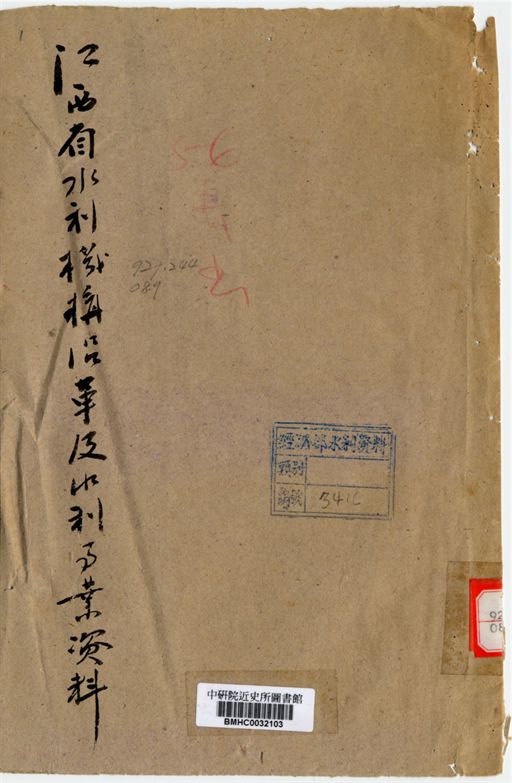 江西省水利機構沿革及水利事業資料
56
927.244
089
經濟部水利資料
類別
編號 3416
92
08
中研院近史所圖書館
BMHC0032103